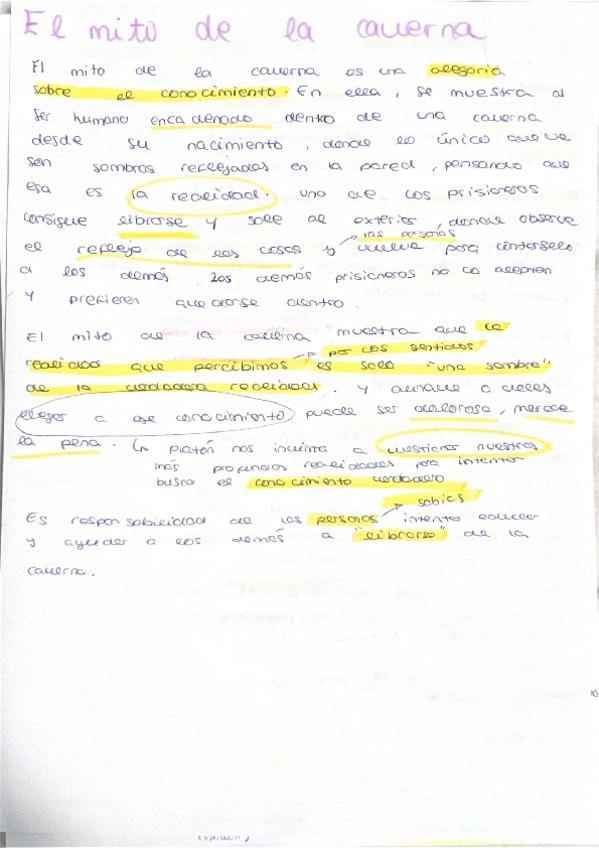 El mito de la caverna
El mito de la caverna es una alegoría
sobre el conocimiento. En ella, se muestra al
ser humano encadenado dentro de una caverna
desde su nacimiento, donde lo único que ve
son sombras reflejadas en la pared, pensando que
esa es la realidad. Uno de los prisioneros
consigue librarse y sale al exterior, donde observa
las personas
el reflejo de las cosas y vuelve para contárselo
a los demás. Los demás prisioneros no lo aceptan
y prefieren quedarse dentro.
El mito de la caverna muestra que la
realidad que percibimos por los sentidos es solo "una sombra"
de la verdadera realidad. Y aunque a veces
llegar a ese conocimiento puede ser doloroso, merece
la pena. Platón nos incita a cuestionar nuestras
más profundas realidades para intentar
busca el conocimiento verdadero
sabias
Es responsabilidad de las personas intentar educar
y ayudar a los demás a "librarse" de la
caverna.